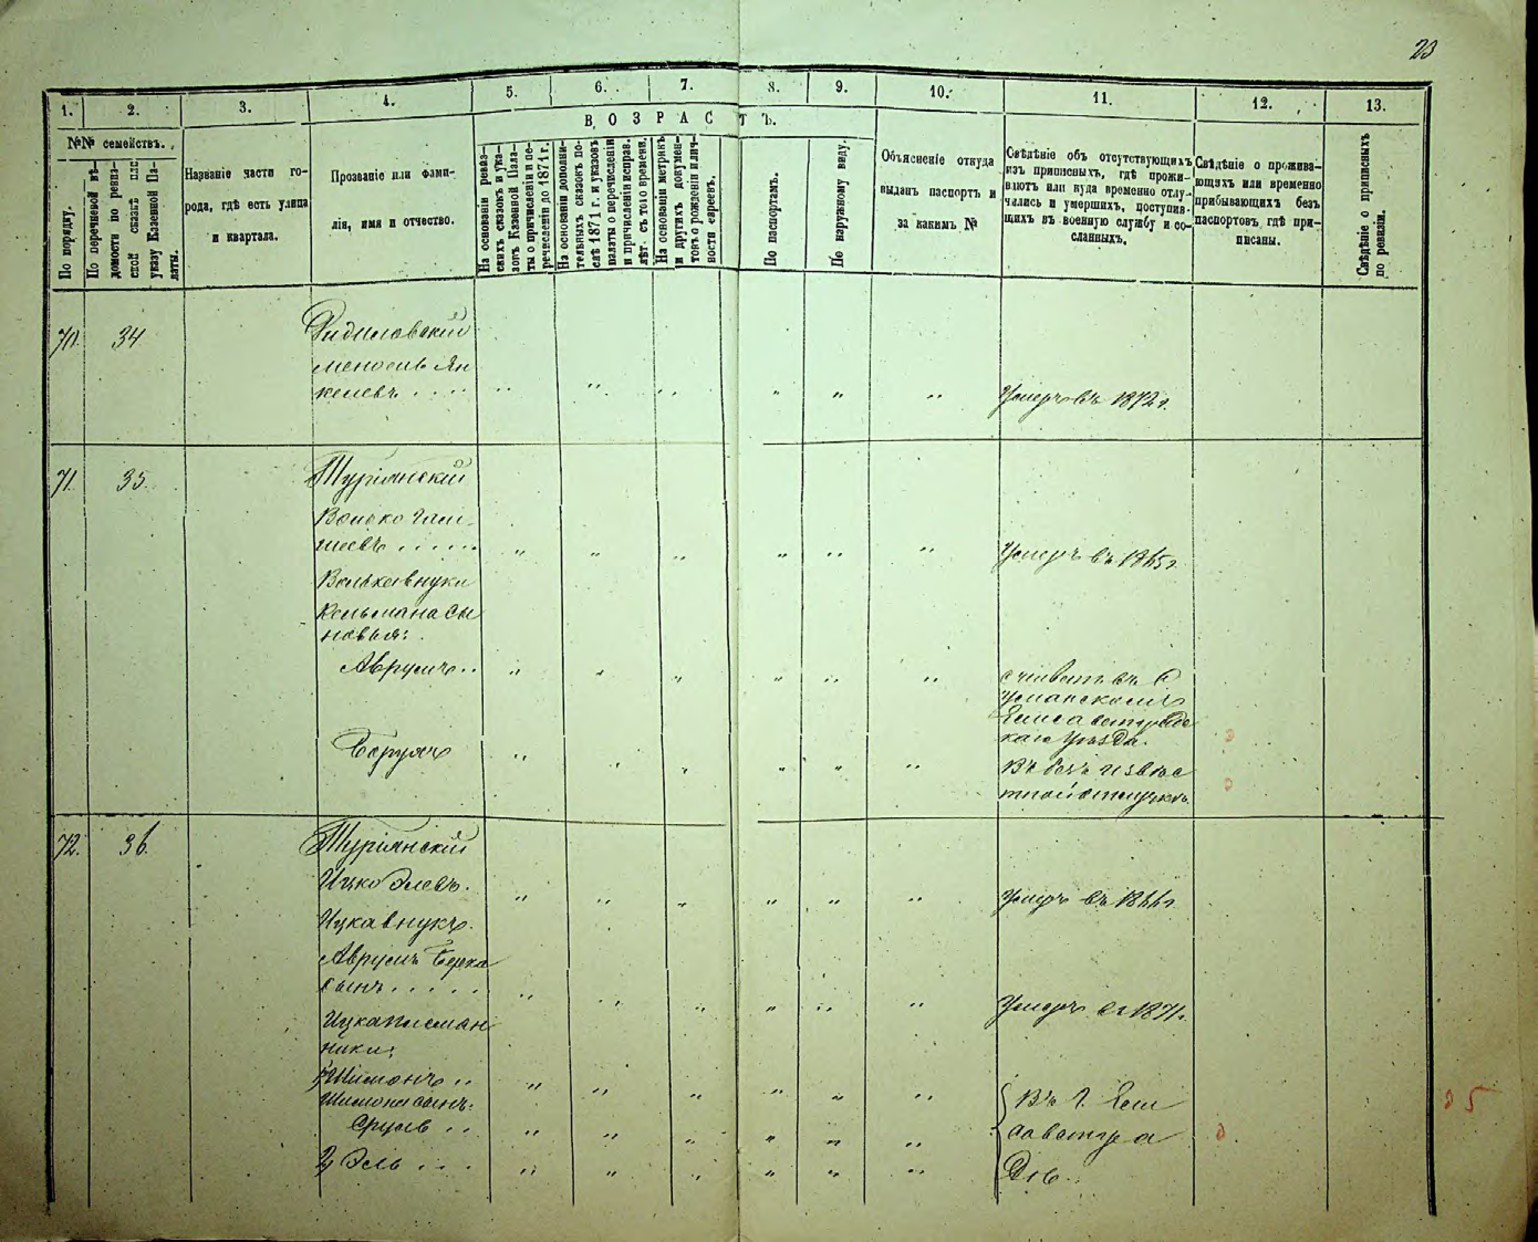 23
1. 2. 3. 4. 5. 6. 7. 8. 9. 10. 11. 12. 13.
№№ семействъ.
По порядку.
По перечневой вѣ-
домости по ревиз-
ской сказкѣ или
указу Казенной Па-
латы.
Названіе части го-
рода, гдѣ есть улица
и квартала.
Прозваніе или фами-
лія, имя и отчество.
ВОЗРАСТЪ.
На основаніи ревиз-
скихъ сказокъ и ука-
зовъ Казенной Пала-
ты о причисленіи и пе-
речисленіи до 1871 г.
На основаніи дополни-
тельныхъ сказокъ по-
слѣ 1871 г. и указовъ
палаты о перечисленіи
и причисленіи исправ.
лѣт. съ того времени.
На основаніи метрикъ
и другихъ докумен-
товъ о рожденіи и лич-
ности евреевъ.
По паспортамъ.
По наружному виду.
Объясненіе откуда
выданъ паспортъ и
за какимъ №
Свѣдѣніе объ отсутствующихъ
изъ приписныхъ, гдѣ прожи-
ваютъ или куда временно отлу-
чились и умершихъ, поступив-
шихъ въ военную службу и со-
сланныхъ.
Свѣдѣніе о прожива-
ющихъ или временно
прибывающихъ безъ
паспортовъ, гдѣ при-
писаны.
Свѣдѣніе о приписныхъ
по ревизіи.
70. 34
Янкелевъ Умеръ въ 1872 г.
71. 35.
Турianскій
Волько
Умеръ въ 1865 г.
Волька внуки
Кельмана сы
новья:
Аврумъ
Елисаветград
каго Уѣзда.
Берумъ
Въ безъ извѣс
тной отлучкѣ.
72. 36.
Туріянскій
Ицко Элевъ. Умеръ въ 1866 г.
Ицка внукъ.
Аврумъ Берка
сынъ Умеръ въ 1871 г.
Ицка племян
ники:
Шимонъ
Шимона сынъ:
Сруль
2, Эль
Въ г. Ели
саветгра
дѣ.